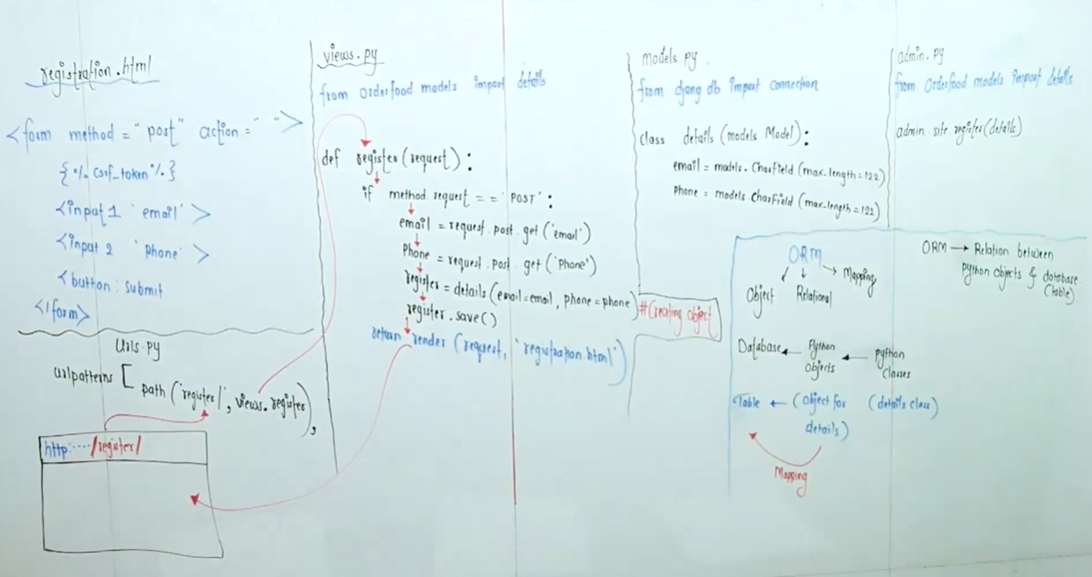 registration.html
<form method = "post" action = " ">
{% csrf_token %}
<input 1 'email' >
<input 2 'phone' >
<button : submit
</form>
urls.py
urlpatterns [
path ('register/', views.register),
http:----/register/
views.py
from orderfood models import details
def register (request) :
if method.request == 'POST' :
email = request.post.get ('email')
Phone = request.post.get ('Phone')
register = details (email=email, phone=phone)
#(creating object
register.save()
return render (request, 'registration.html')
models.py
from djang db import connection
class details (models Model) :
email = models. CharField (max.length=122)
Phone = models CharField (max.length=122)
admin.py
from Orderfood models import details
admin.site.register(details)
ORM
Object Relational Mapping
ORM → Relation between
python objects & database
(table)
Database ← Python Objects ← python classes
Table ← (Object for details) (details class)
Mapping